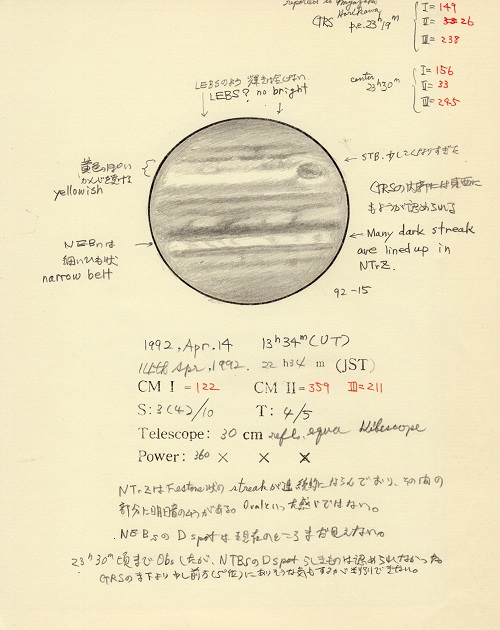 reported to Miyazaki
Horikawa
GRS p.c. 23h19m
I = 149
II = 26
III = 238
center
23h30m
I = 156
II = 33
III = 245
LEBSのよう 輝きはない
LEBS? no bright
黄色っぽい
かんじを受ける
yellowish
← STB. 少してくなりすぎた
GRSの内部には
もようが認められる
NEBnは
細いひも状
narrow belt
← Many dark streak
are lined up in
NTrZ.
92-15
1992, Apr. 14 13h34m (UT)
14th Apr, 1992. 22h34m (JST)
CM I = 122 CM II = 359 III = 211
S: 3(4)/10 T: 4/5
Telescope: 30 cm refl. equa
Power: 360 × × ×
NTrZはFestone状のstreakが連続的にならんでおり、その間の
部分に明暗のようがある Ovalといった感じではない。
NEBsのD spotは現在のところまだ見えない。
23h30m頃までObsしたが、NTBsのD spotらしきものは認められなかった
GRSの真下より少し前方(5°位)にありそうな気もするが判別できない。